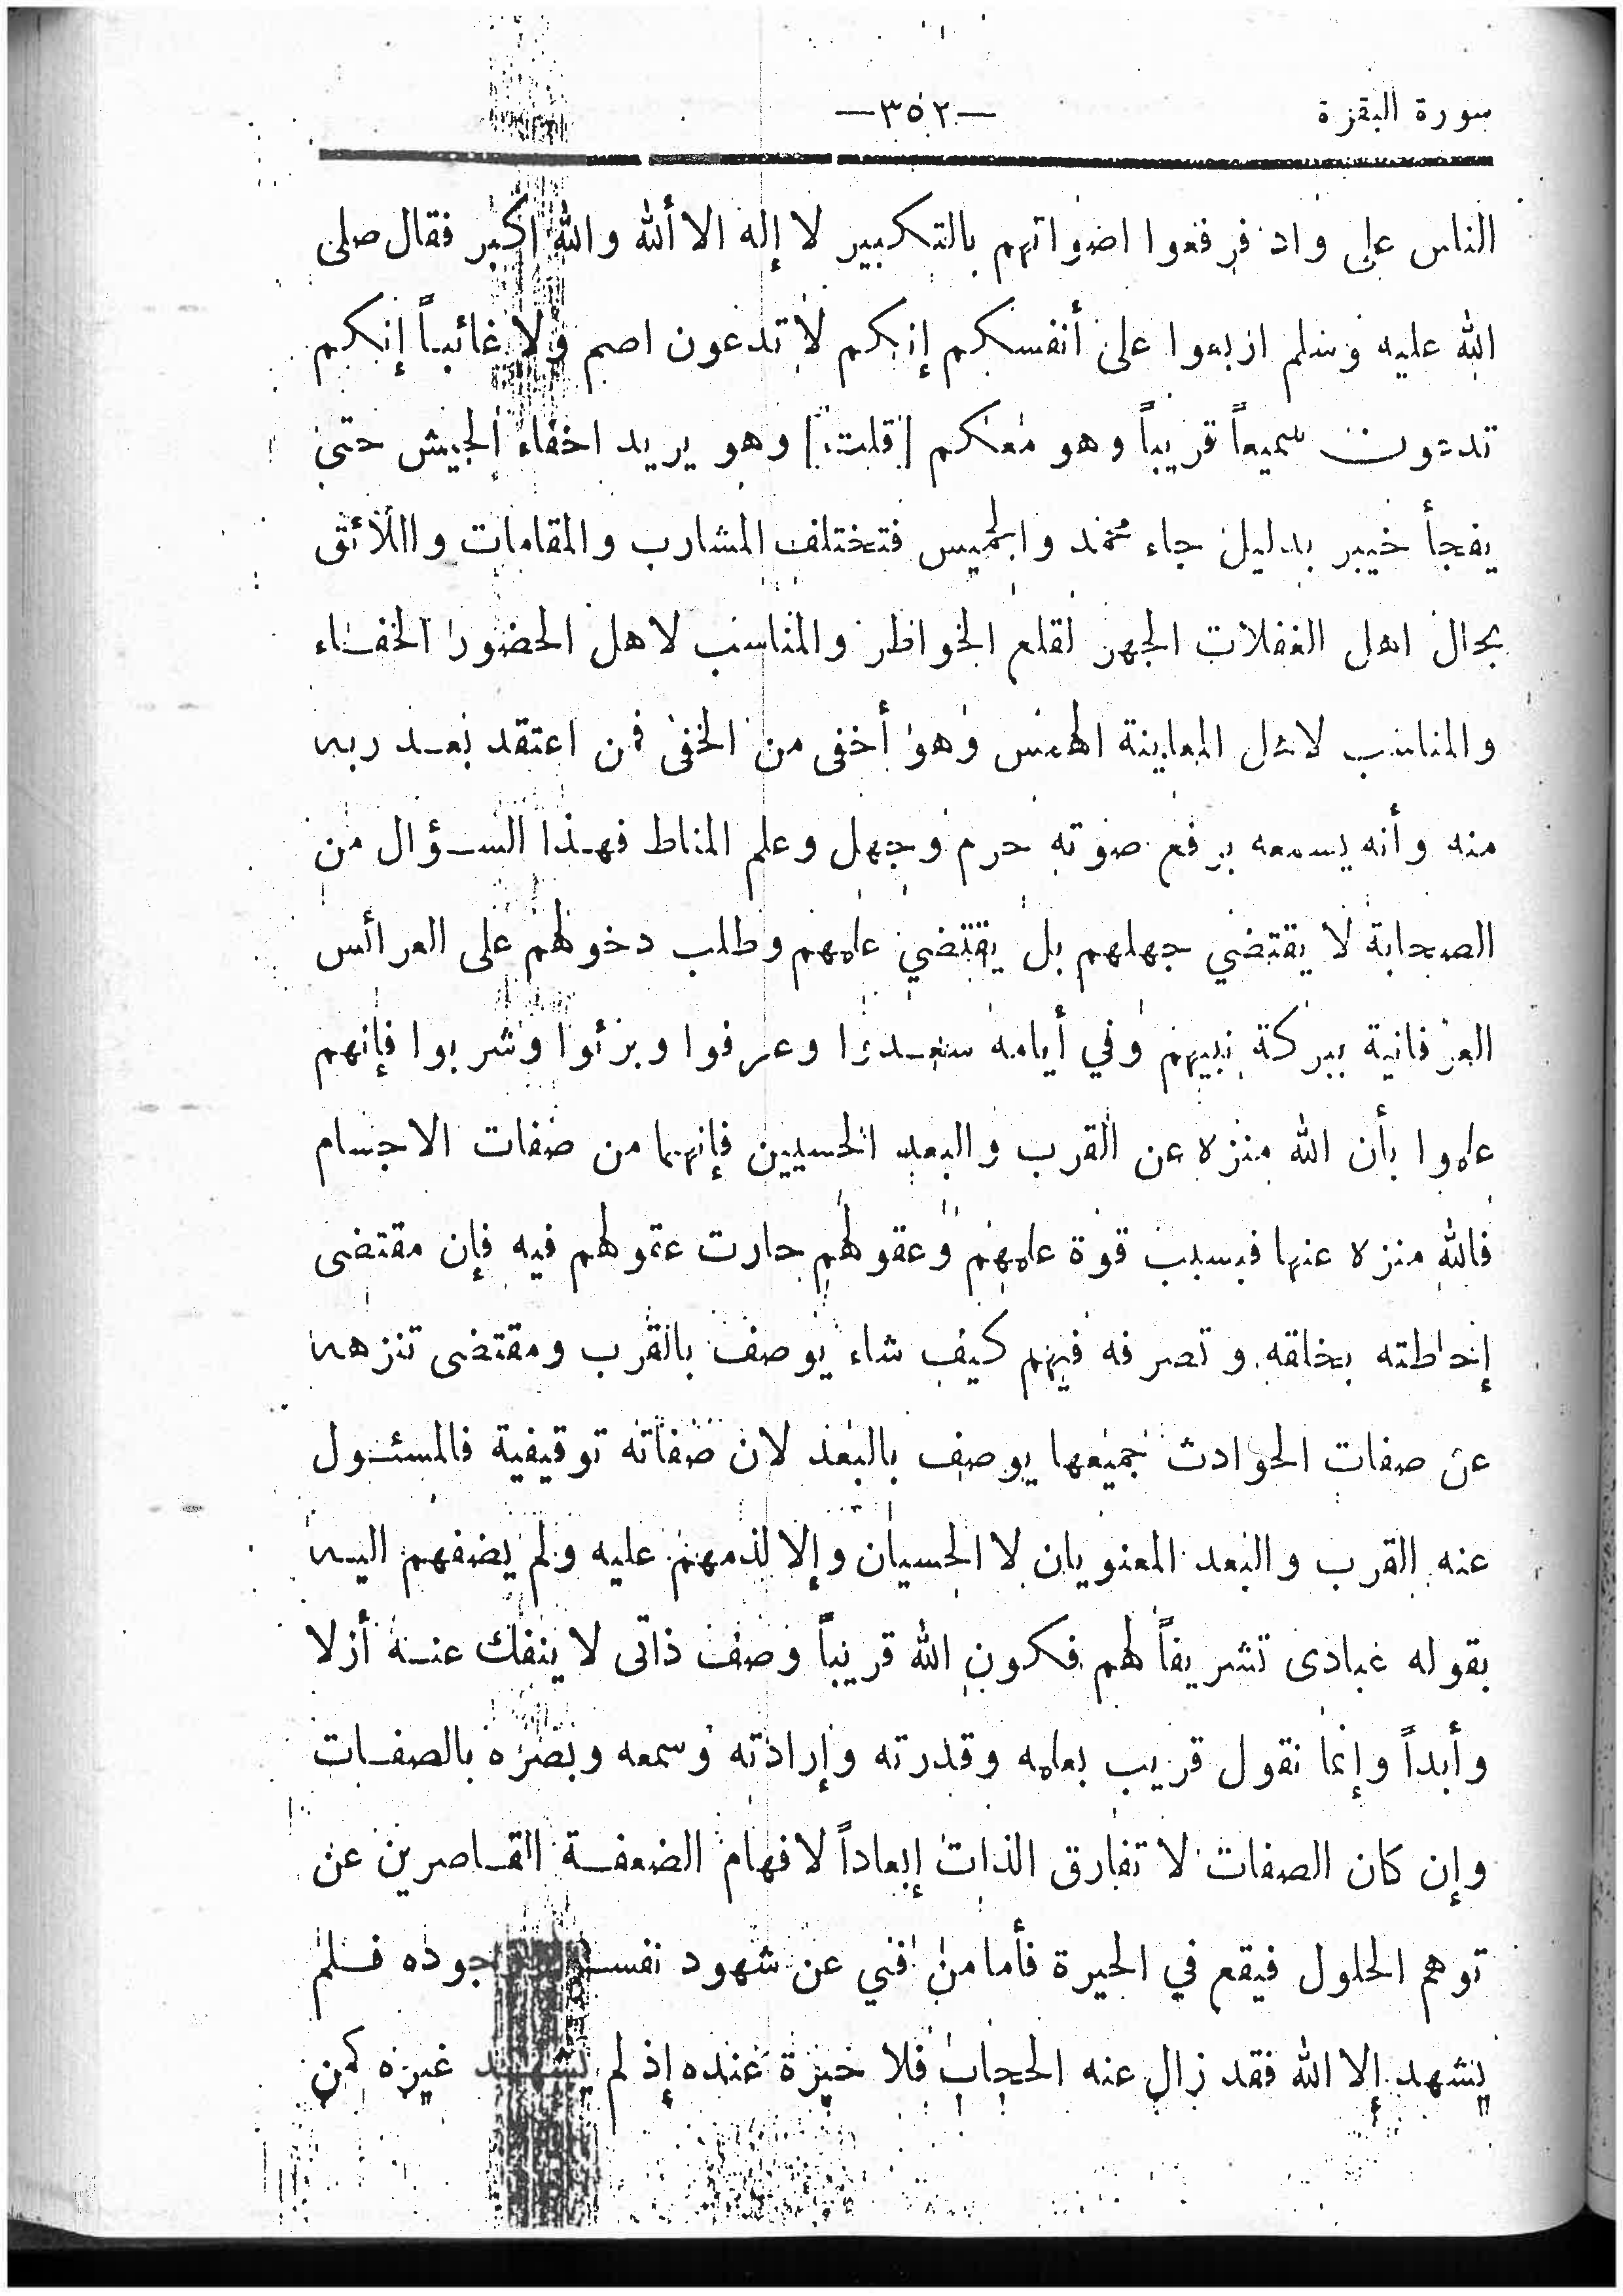 سورة البقرة
—٣٥٢—
الناس على واد فرفعوا اصواتهم بالتكبير لا إله الا ألله والله اكبر فقال صلى
الله عليه وسلم اربعوا على أنفسكم إنكم لا تدعون اصم ولا غائباً إنكم
تدعون سميعاً قريباً وهو معكم [قلت] وهو يريد اخفاء الجيش حتى
يفجأ خيبر بدليل جاء محمد والخميس فتختلف المشارب والمقامات واللائق
بحال اهل الغفلات الجهر لقلع الخواطر والمناسب لاهل الحضور الخفاء
والمناسب لاهل المعاينة الهمس وهو أخفى من الخفى فمن اعتقد بعد ربه
منه وأنه يسمعه برفع صوته حرم وجهل وعلم المناط فهذا السؤال من
الصحابة لا يقتضي جهلهم بل يقتضي علمهم وطلب دخولهم على العرائس
العرفانية ببركة نبيهم وفي أيامه سعدوا وعرفوا وبرئوا وشربوا فإنهم
علموا بأن الله منزه عن القرب والبعد الحسيين فإنهما من صفات الاجسام
فالله منزه عنها فبسبب قوة علمهم وعقولهم حارت عقولهم فيه فإن مقتضى
إحاطته بخلقه وتصرفه فيهم كيف شاء يوصف بالقرب ومقتضى تنزهه
عن صفات الحوادث جميعها يوصف بالبعد لان صفاته توقيفية فالمسئول
عنه القرب والبعد المعنويان لا الحسيان وإلا لذمهم عليه ولم يضفهم اليه
بقوله عبادى تشريفاً لهم فكون الله قريباً وصف ذاتى لا ينفك عنه أزلا
وأبداً وإنما نقول قريب بعلمه وقدرته وإرادته وسمعه وبصره بالصفات
وإن كان الصفات لا تفارق الذات إبعاداً لافهام الضعفة القاصرين عن
توهم الحلول فيقع في الحيرة فأما من فني عن شهود نفسه جوده فلم
يشهد إلا الله فقد زال عنه الحجاب فلا حيرة عنده إذ لم يشهد غيره كمن